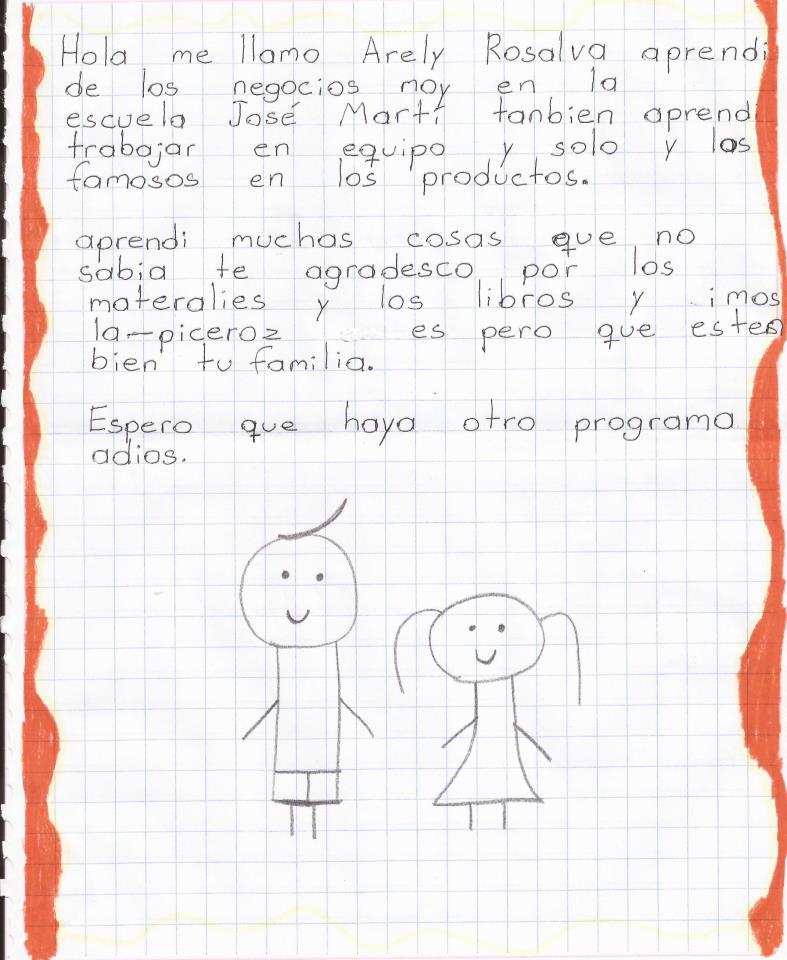 Hola me llamo Arely Rosalva aprendi
de los negocios moy en la
escuela José Martí tanbien aprendi
trabajar en equipo y solo y los
famosos en los productos.
aprendi muchas cosas que no
sabia te agradesco por los
materalies y los libros y imos
la-piceroz es pero que esten
bien tu familia.
Espero que haya otro programa
adios.